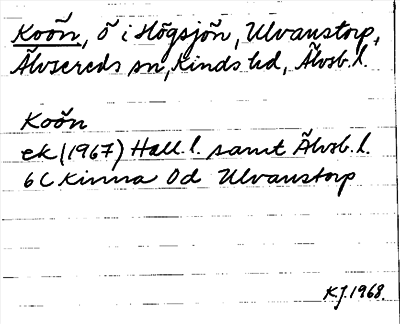 Koön, ö i Högsjön, Ulvanstorp,
Älvsereds sn, Kinds hd, Älvsb. l.
Koön
ek (1967) Hall. l. samt Älvsb. l.
6C Kinna 0d Ulvanstorp
K.J. 1968.